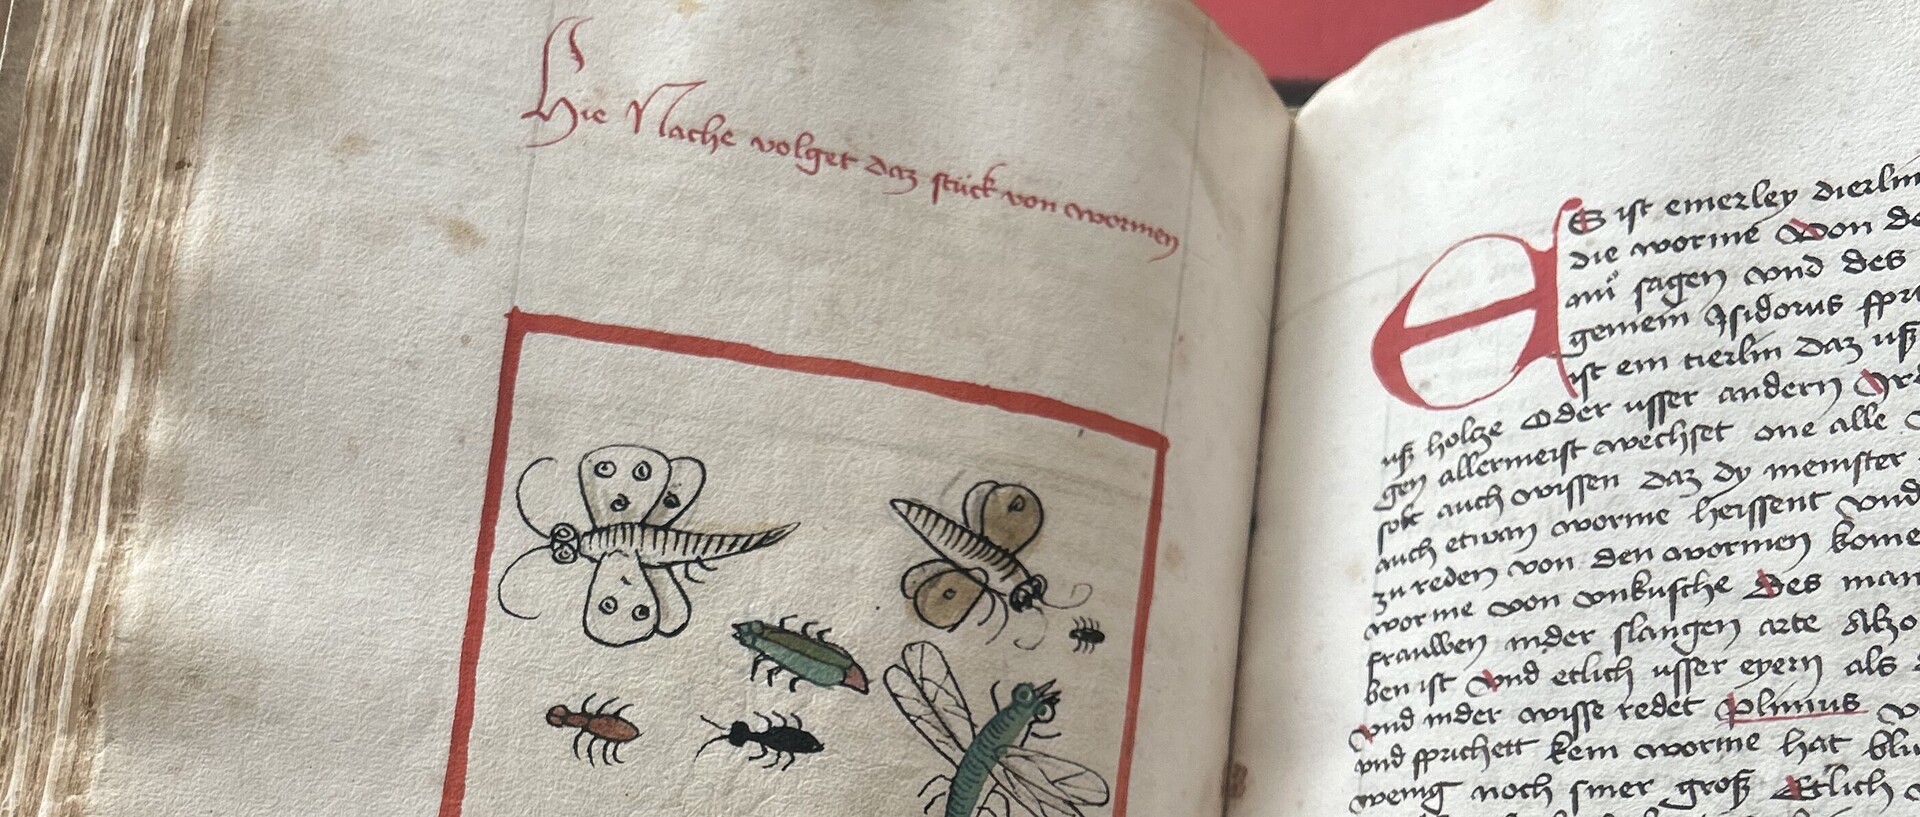 Hie Nache volget daz stück von wormen
ES ist einerley dierlin
die worme Von de
an sagen vnd des
gemein Jsidorus spri
ist ein tierlin daz uß
uß holtze Oder usser andern
gen allermeist wechset one alle
solt auch wissen daz dy meinster
auch etwan worme heissent vnd
zu reden von den wormen kome
worme von vnkusche Des man
frauwen inder slangen arte Also
ben ist Vnd etlich usser eyern als
Vnd inder wisse redet Plinius v
vnd sprichett kein worme hat blu
wenig noch smer groß Etlich